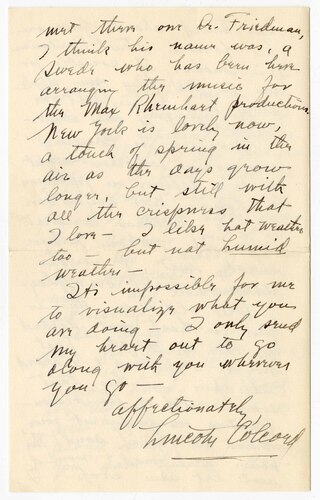 met there one Dr. Friedman,
I think his name was, a
Swede who has been here
arranging the music for
the Max Rheinhart productions
New York is lovely now,
a touch of spring in the
air as the days grow
longer, but still with
all the crispness that
I love - I like hot weather
too - but not humid
weather -
It's impossible for me
to visualize what you
are doing - I only send
my heart out to go
along with you wherever
you go -
Affectionately,
Lincoln Colcord